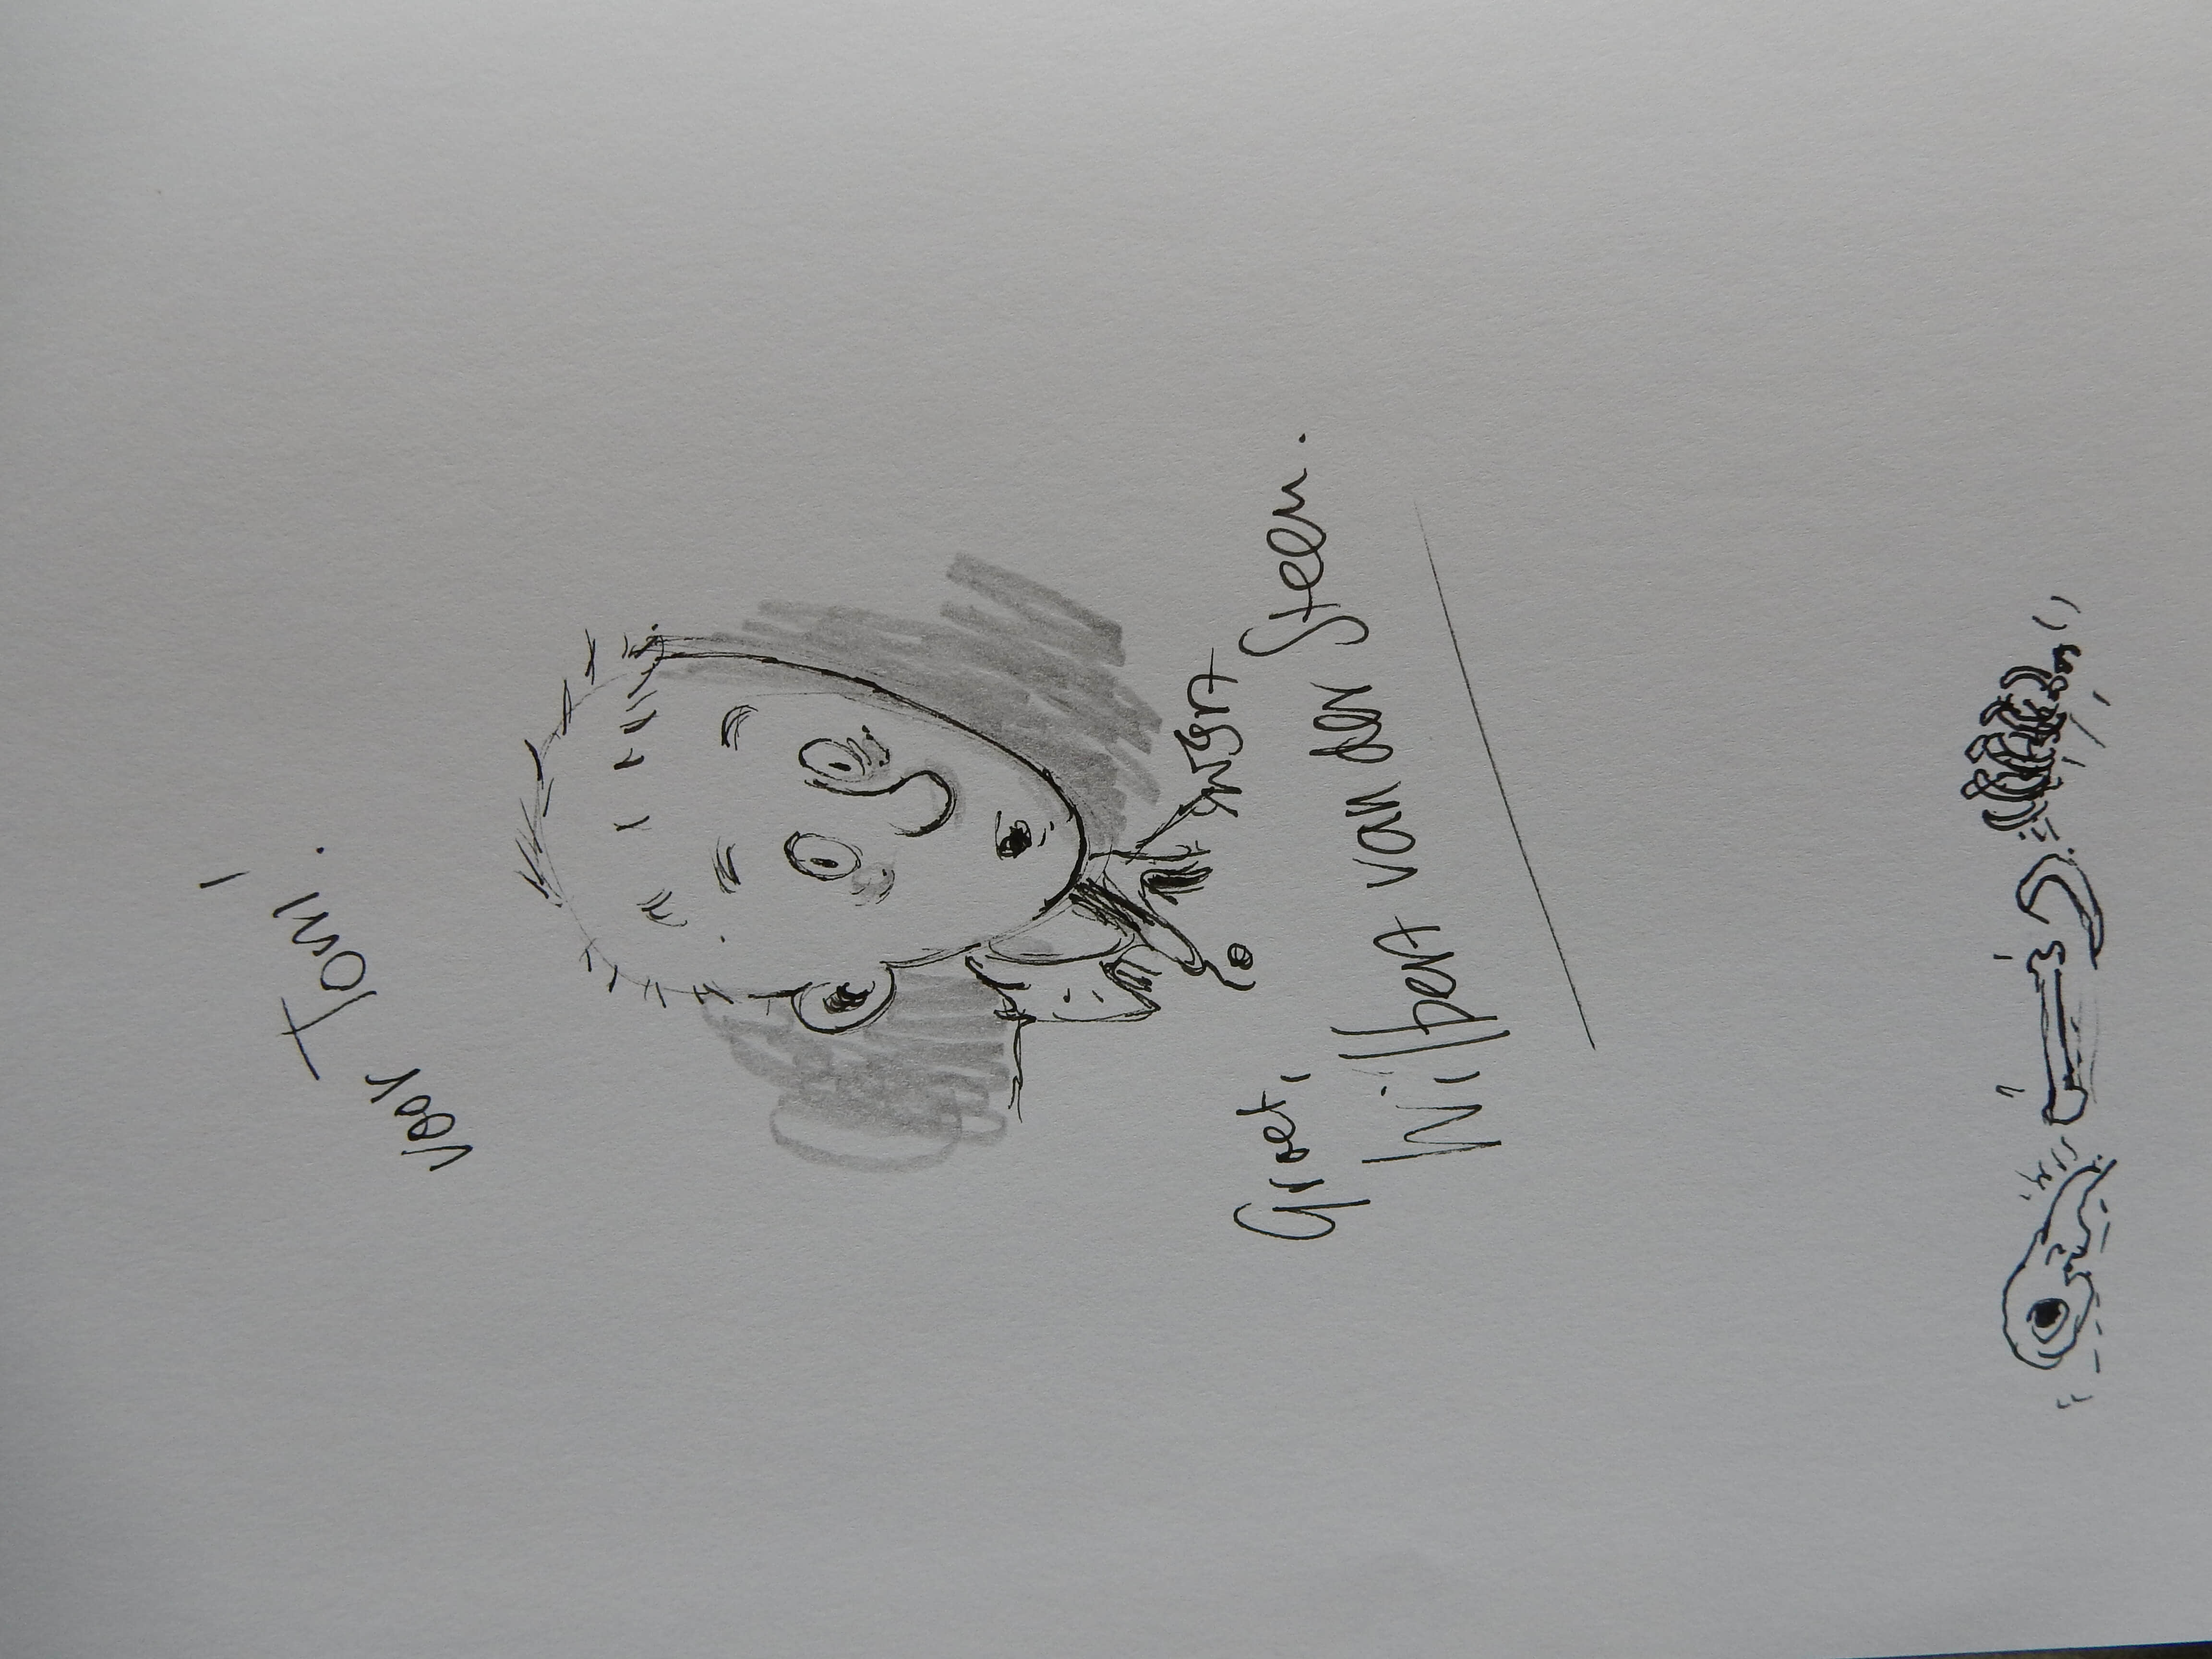 voor Tom!
Groet,
Wilbert van der Steen.